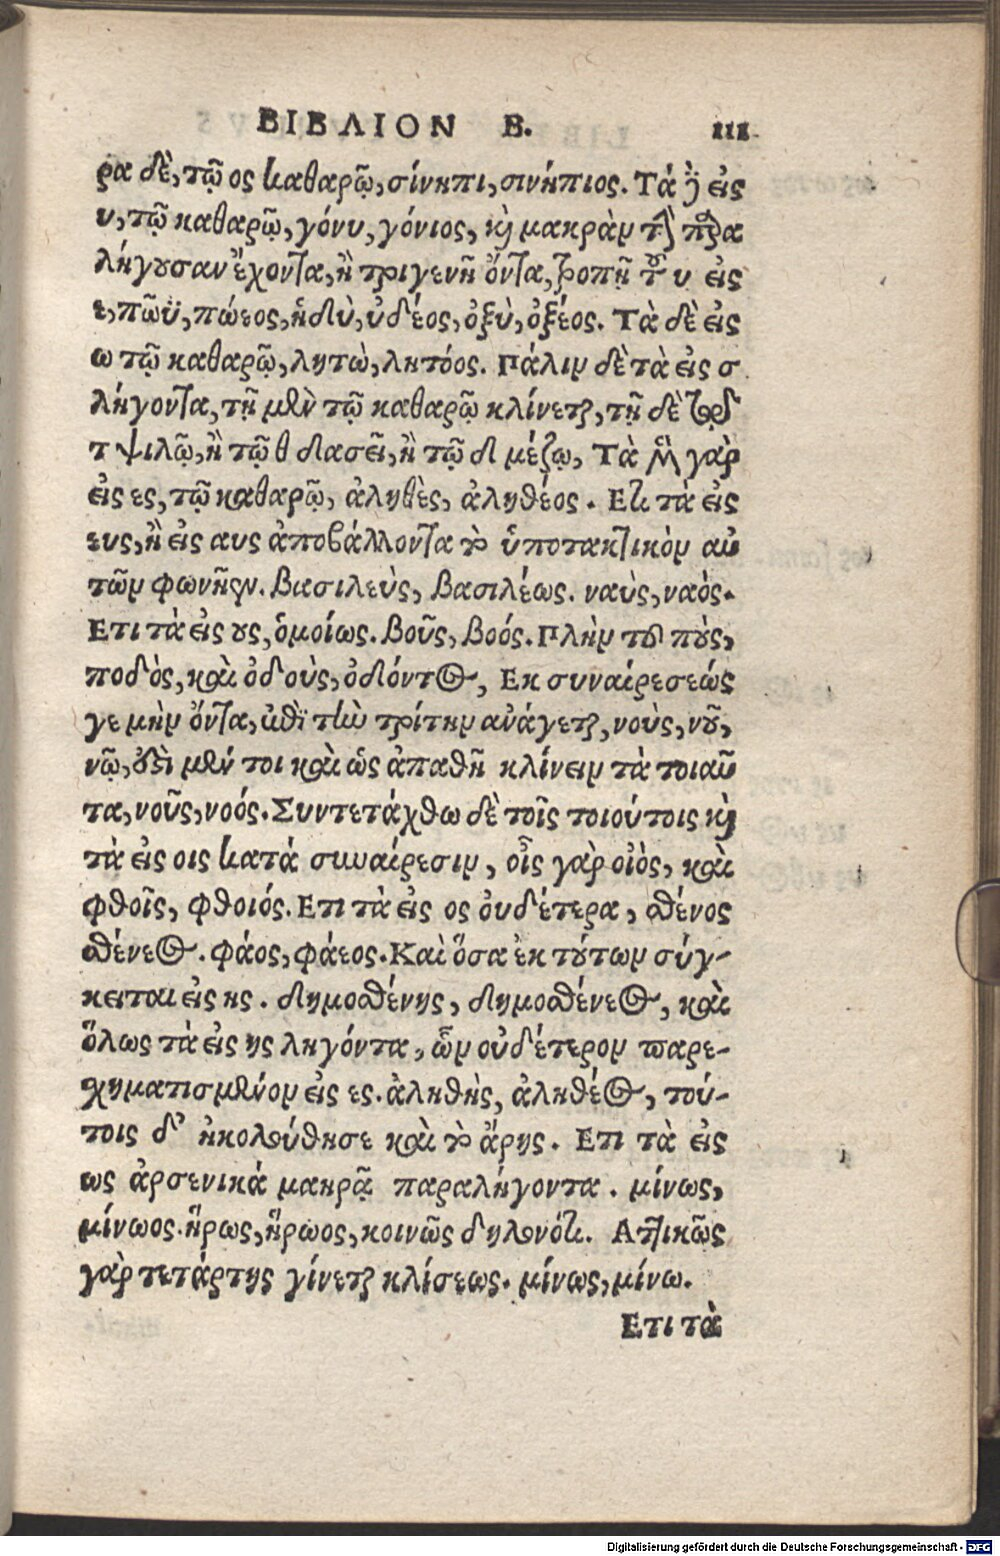 ΒΙΒΛΙΟΝ Β. 111
ρα δὲ, τῷ ος καθαρῷ, σίνηπι, σινήπιος. Τά δὲ εἰς
υ, τῷ καθαρῷ, γόνυ, γόνιος, καὶ μακρὰν τὴν προπα
λήγουσαν ἔχοντα, ἢ τριγενῆ ὄντα, τροπῇ τοῦ υ εἰς
ε, πῶϋ, πώεος, ἡδὺ, ὑδέος, ὀξὺ, ὀξέος. Τὰ δὲ εἰς
ω τῷ καθαρῷ, λητὼ, λητόος. Πάλιν δὲ τὰ εἰς σ
λήγοντα, τῇ μὲν τῷ καθαρῷ κλίνεται, τῇ δὲ
τ ψιλῷ, ἢ τῷ θ δασεῖ, ἢ τῷ δ μέζῳ, Τὰ μὲν γὰρ
εἰς ες, τῷ καθαρῷ, ἀληθὲς, ἀληθέος. Ετι τὰ εἰς
ευς, ἢ εἰς αυς ἀποβάλλοντα τὸ ὑποτακτικὸν αὐ
τῶν φωνῆεν. βασιλεὺς, βασιλέως. ναὺς, ναὸς.
Ετι τὰ εἰς ους, ὁμοίως. βοῦς, βοός. Πλὴν τοῦ πὸυς,
ποδὸς, καὶ ὀδοὺς, ὀδόντος, Εκ συναιρεσεώς
γε μὴν ὄντα, ἐπὶ τὴν τρίτην ανάγεται, νοὺς, νοῦ,
νῷ, δεῖ μέν τοι καὶ ὡς ἀπαθῆ κλίνειν τὰ τοιαῦ
τα, νοῦς, νοός. Συντετάχθω δὲ τοῖς τοιούτοις καὶ
τὰ εἰς οις κατά συναίρεσιν, οἶς γὰρ οἰὸς, καὶ
φθοῖς, φθοιός. Ετι τὰ εἰς ος ὀυδέτερα, σθένος
σθένεος. φάος, φάεος. Καὶ ὅσα ἐκ τούτων σύγ-
κειται εἰς ης. δημοσθένης, δημοσθένεος, καὶ
ὅλως τὰ εἰς ης ληγόντα, ὧν οὐδέτερον παρε-
χηματισμένον εἰς ες. ἀληθὴς, ἀληθέος, τού-
τοις δ' ἠκολούθησε καὶ τὸ ἄρης. Ετι τὰ εἰς
ως ἀρσενικά μακρᾷ παραλήγοντα. μίνως,
μίνωος. ἥρως, ἥρωος, κοινῶς δηλονότι. Αττικῶς
γὰρ τετάρτης γίνεται κλίσεως. μίνως, μίνω.
Ετι τὰ
Digitalisierung gefördert durch die Deutsche Forschungsgemeinschaft - DFG